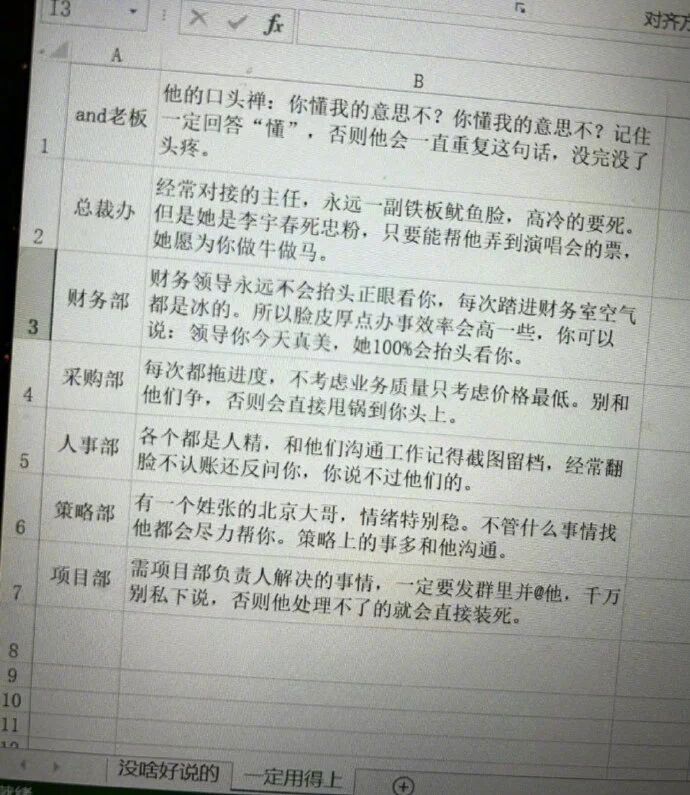 I3
fx
对齐方
A
B
1
and老板
他的口头禅：你懂我的意思不？你懂我的意思不？记住
一定回答“懂”，否则他会一直重复这句话，没完没了
头疼。
2
总裁办
经常对接的主任，永远一副铁板鱿鱼脸，高冷的要死。
但是她是李宇春死忠粉，只要能帮他弄到演唱会的票，
她愿为你做牛做马。
3
财务部
财务领导永远不会抬头正眼看你，每次踏进财务室空气
都是冰的。所以脸皮厚点办事效率会高一些，你可以
说：领导你今天真美，她100%会抬头看你。
4
采购部
每次都拖进度，不考虑业务质量只考虑价格最低。别和
他们争，否则会直接甩锅到你头上。
5
人事部
各个都是人精，和他们沟通工作记得截图留档，经常翻
脸不认账还反问你，你说不过他们的。
6
策略部
有一个姓张的北京大哥，情绪特别稳。不管什么事情找
他都会尽力帮你。策略上的事多和他沟通。
7
项目部
需项目部负责人解决的事情，一定要发群里并@他，千万
别私下说，否则他处理不了的就会直接装死。
8
9
10
11
没啥好说的
一定用得上